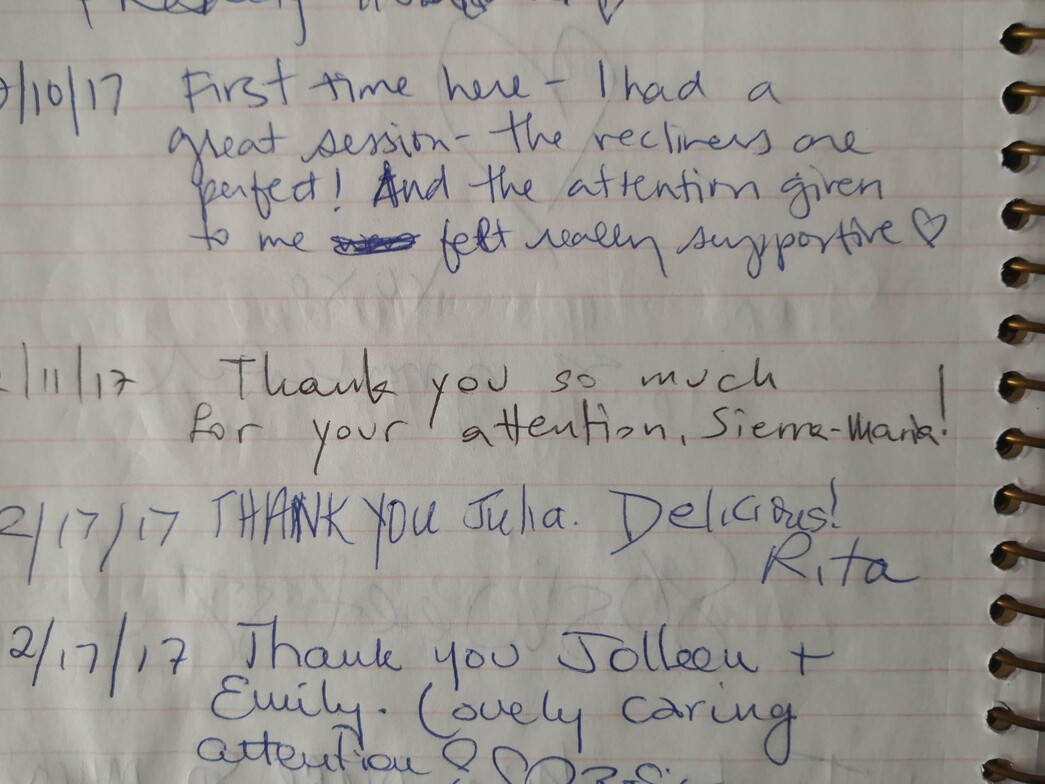 /10/17 First time here - I had a
great session - the recliners are
perfect! And the attention given
to me felt really supportive ♡
/11/17 Thank you so much
for your attention, Sierra-Maria!
2/17/17 THANK YOU Julia. Delicious!
Rita
2/17/17 Thank you Jolleen +
Emily. Lovely caring
attention